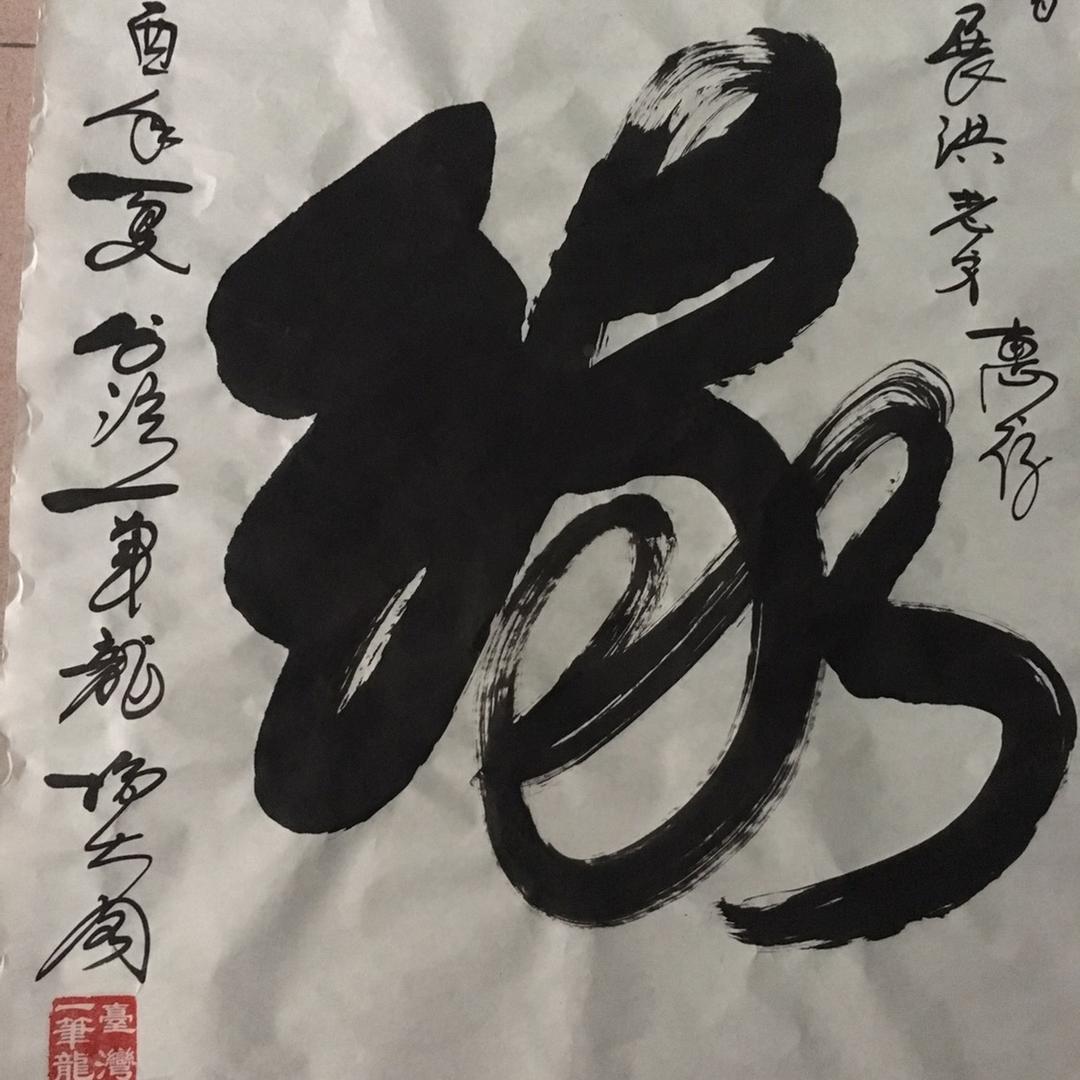 展洪老弟惠存
龍
酉年夏台灣一筆龍
臺灣
一筆龍